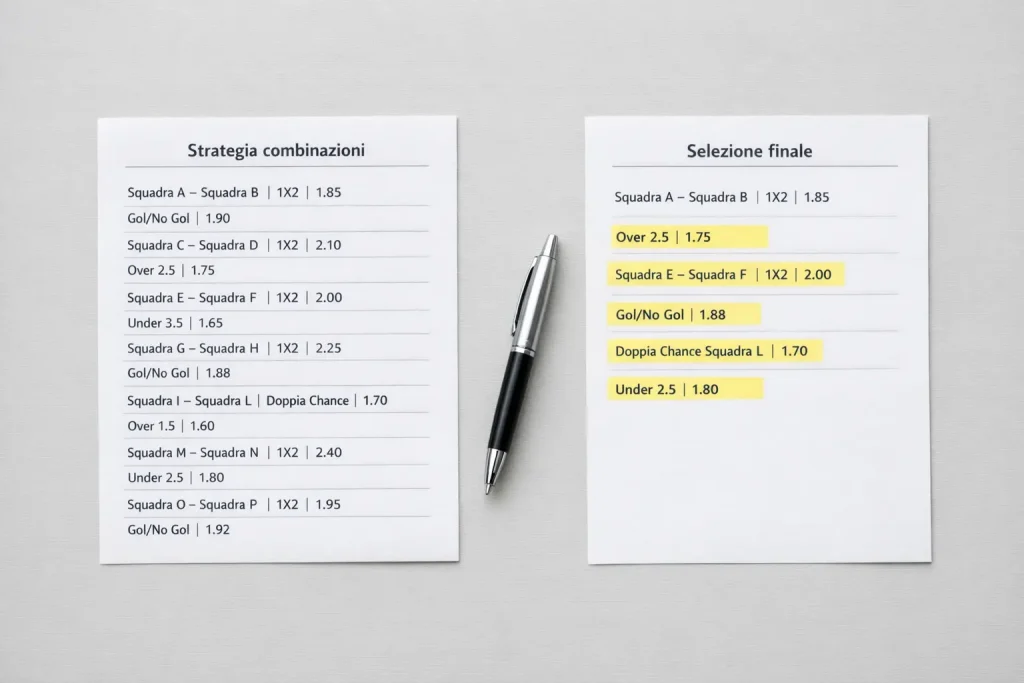 Strategia combinazioni
Squadra A – Squadra B | 1X2 | 1.85
Gol/No Gol | 1.90
Squadra C – Squadra D | 1X2 | 2.10
Over 2.5 | 1.75
Squadra E – Squadra F | 1X2 | 2.00
Under 3.5 | 1.65
Squadra G – Squadra H | 1X2 | 2.25
Gol/No Gol | 1.88
Squadra I – Squadra L | Doppia Chance | 1.70
Over 1.5 | 1.60
Squadra M – Squadra N | 1X2 | 2.40
Under 2.5 | 1.80
Squadra O – Squadra P | 1X2 | 1.95
Gol/No Gol | 1.92
Selezione finale
Squadra A – Squadra B | 1X2 | 1.85
Over 2.5 | 1.75
Squadra E – Squadra F | 1X2 | 2.00
Gol/No Gol | 1.88
Doppia Chance Squadra L | 1.70
Under 2.5 | 1.80